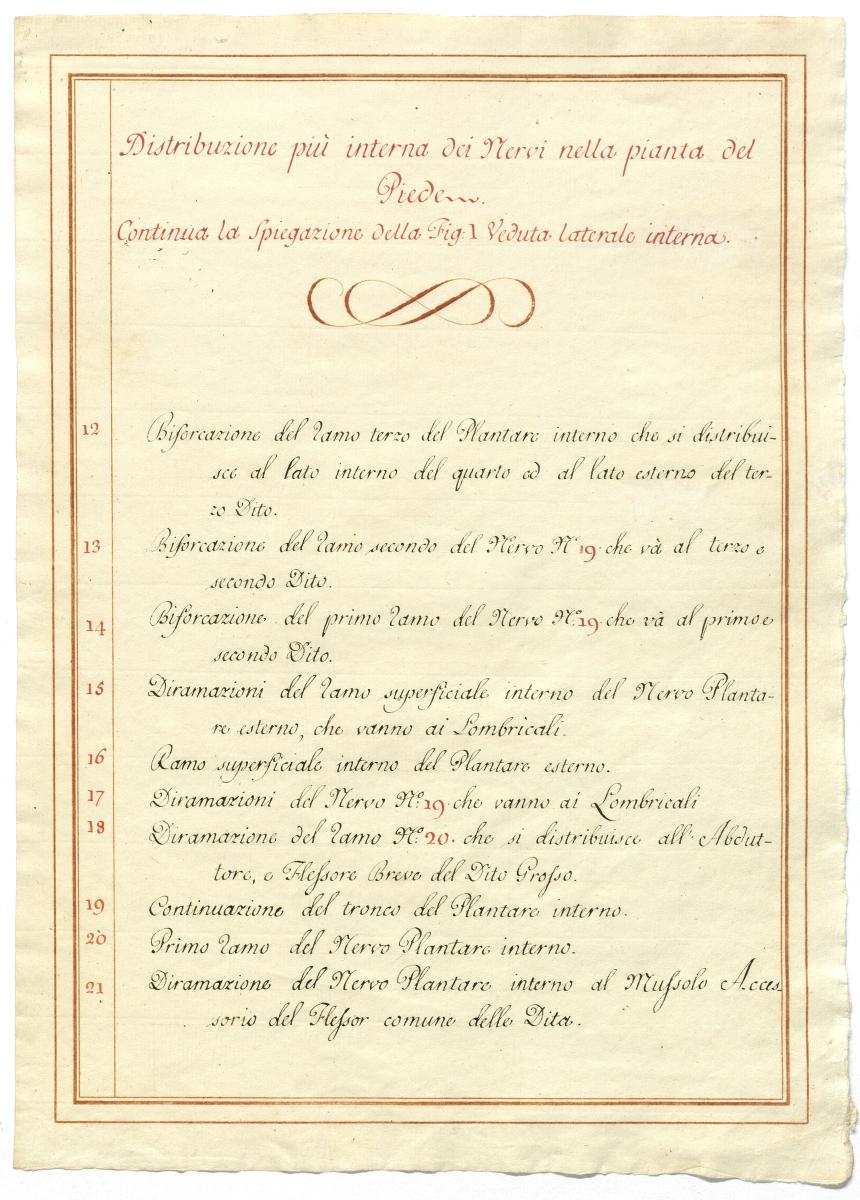 Distribuzione più interna dei Nervi nella pianta del
Piede
Continua la Spiegazione della Fig: 1 Veduta laterale interna.
12 Biforcazione del ramo terzo del Plantare interno che si distribui-
sce al lato interno del quarto ed al lato esterno del ter-
zo Dito.
13 Biforcazione del ramo secondo del Nervo Nº 19. che và al terzo e
secondo Dito.
14 Biforcazione del primo ramo del Nervo Nº. 19. che và al primo e
secondo Dito.
15 Diramazioni del ramo superficiale interno del Nervo Planta-
re esterno, che vanno ai Lombricali.
16 Ramo superficiale interno del Plantare esterno.
17 Diramazioni del Nervo Nº. 19. che vanno ai Lombricali
18 Diramazione del ramo Nº. 20. che si distribuisce all' Abdut-
tore, e Flessore Breve del Dito Grosso.
19 Continuazione del tronco del Plantare interno.
20 Primo ramo del Nervo Plantare interno.
21 Diramazione del Nervo Plantare interno al Mussolo Acces-
sorio del Flessor comune delle Dita.